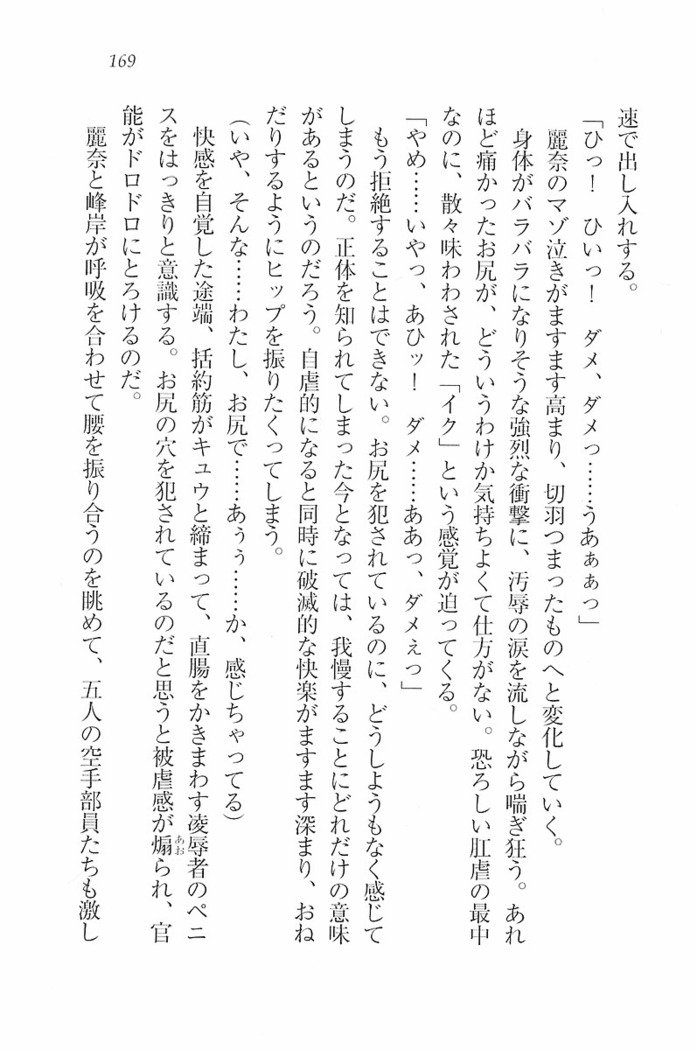 169
速で出し入れする。
「ひっ！　ひいっ！　ダメ、ダメっ……うあぁぁっ」
麗奈のマゾ泣きがますます高まり、切羽つまったものへと変化していく。
身体がバラバラになりそうな強烈な衝撃に、汚辱の涙を流しながら喘ぎ狂う。あれ
ほど痛かったお尻が、どういうわけか気持ちよくて仕方がない。恐ろしい肛虐の最中
なのに、散々味わわされた「イク」という感覚が迫ってくる。
「やめ……いやっ、あひッ！　ダメ……ああっ、ダメぇっ」
もう拒絶することはできない。お尻を犯されているのに、どうしようもなく感じて
しまうのだ。正体を知られてしまった今となっては、我慢することにどれだけの意味
があるというのだろう。自虐的になると同時に破滅的な快楽がますます深まり、おね
だりするようにヒップを振りたくってしまう。
（いや、そんな……わたし、お尻で……あぅぅ……か、感じちゃってる）
快感を自覚した途端、括約筋がキュウと締まって、直腸をかきまわす凌辱者のペニ
スをはっきりと意識する。お尻の穴を犯されているのだと思うと被虐感が煽られ、官
あお
能がドロドロにとろけるのだ。
麗奈と峰岸が呼吸を合わせて腰を振り合うのを眺めて、五人の空手部員たちも激し